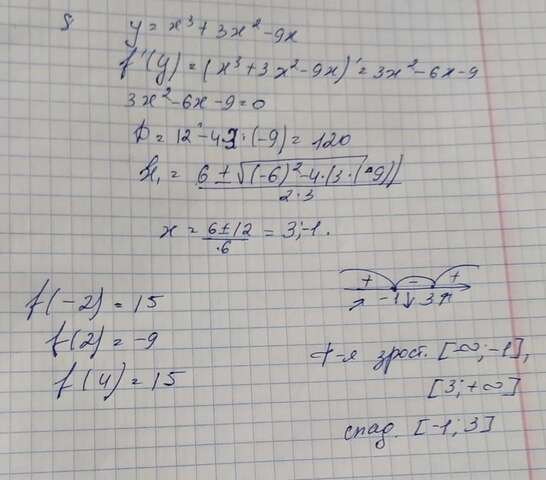 8
y = x³ + 3x² - 9x
f'(y) = (x³ + 3x² - 9x)' = 3x² - 6x - 9
3x² - 6x - 9 = 0
D = 12 - 4 · (-9) = 120
6 ± √(-6)² - 4·(3·(-9))
2·3
x = 6 ± 12 / ·6 = 3; -1.
+ - +
-1 3
f(-2) = 15
f(2) = -9
f(4) = 15
ф-я зрост. [-∞; -1],
[3; +∞]
спад. [-1; 3]